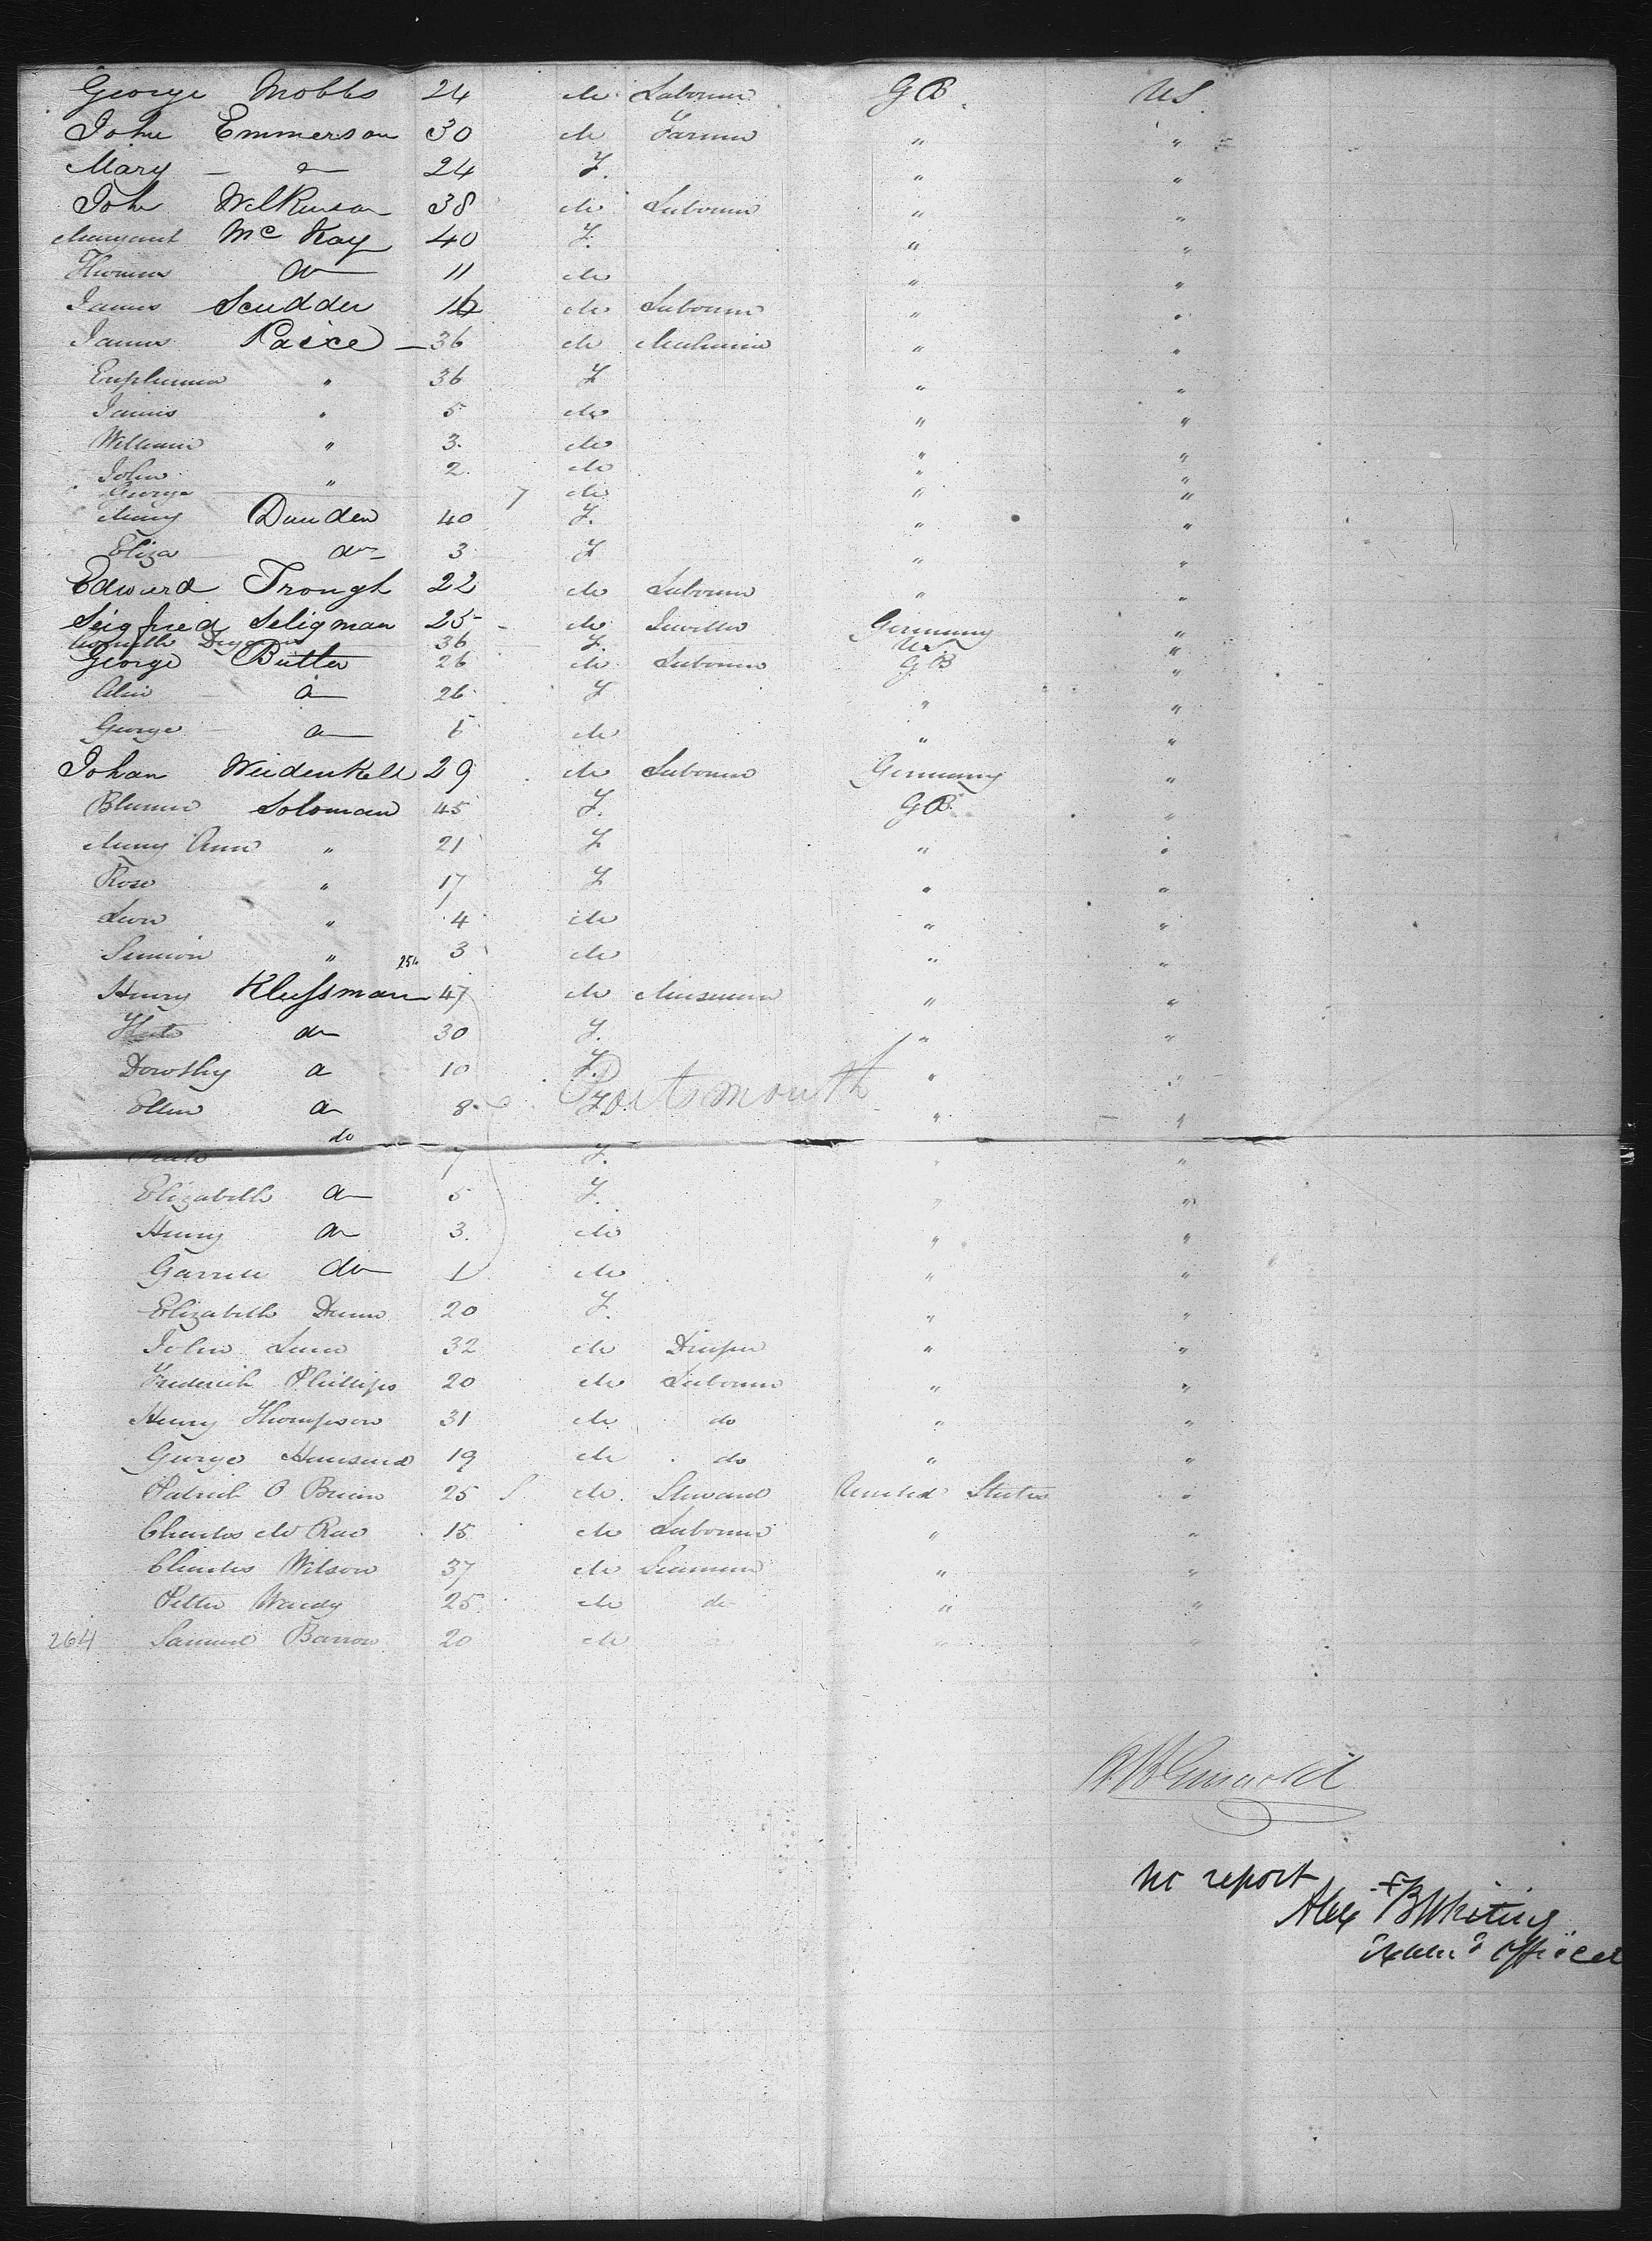 George Mobbs 24 M Labourer GB US
John Emmerson 30 M Farmer " "
Mary — do — 24 F. " "
John Wilkinson 38 M Labourer " "
Margaret McKay 40 F. " "
Thomas do 11 M " "
James Scudder 16 M Labourer " "
James Paice — 36 M Mechanic " "
Euphemia " 36 F " "
James " 5 M " "
William " 3 M " "
John " 2 M " "
George M " "
Mary Dauden 40 F. " "
Eliza — do — 3 F " "
Edward Trough 22 M Labourer " "
Seigfried Seligman 25 M Jeweller Germany "
36 F. US "
George Butler 26 M Labourer GB "
Alice — do 26 F " "
George — do 6 M " "
Johan Weidenkell 29 M Labourer Germany "
Soloman 45 F. GB "
Mary Ann " 21 F " "
Rose " 17 F " "
Leon " 4 M " "
Simeon " 254 3 M " "
Henry Klussman 47 M " "
do 30 F. " "
Dorothy do 10 F. " "
Portsmouth
Ellen do 8 F. " "
Kate do 7 F. " "
Elizabeth do 5 F. " "
Henry do 3. M " "
do 1 M " "
Elizabeth Dunn 20 F. " "
John Lunn 32 M Draper " "
Frederick Phillips 20 M Labourer " "
Henry Thompson 31 M do " "
George 19 M do " "
Patrick O Brien 25 M Steward United States "
Charles McRae 15 M Labourer " "
Charles Wilson 37 M Seaman " "
Peter 25 M do " "
264 Samuel Barrow 20 M do " "
No report
Alex F B Whiting
Officer